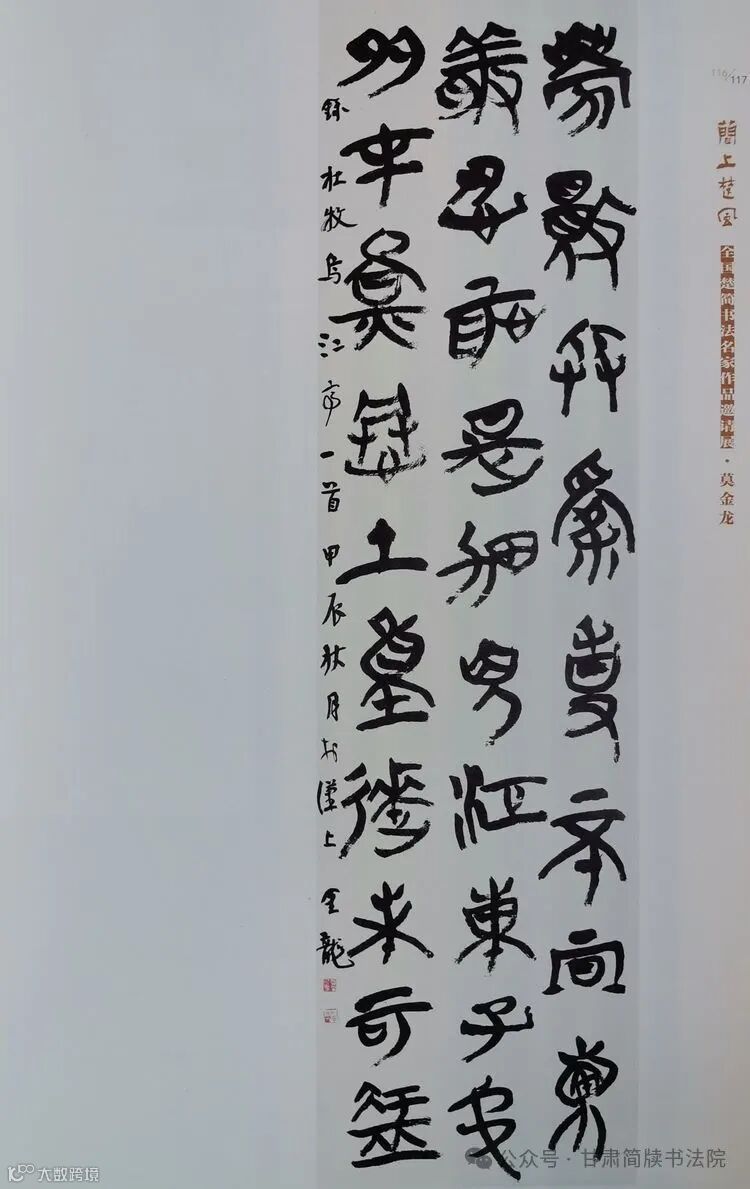 116/117
簡上楚风
全国楚简书法名家作品邀请展·莫金龙
勝敗兵家事不期包
羞忍恥是男兒江東子弟
多才俊捲土重來未可知
錄杜牧烏江亭一首甲辰秋月於漢上金龍
公众号·甘肃简牍书法院
大数跨境